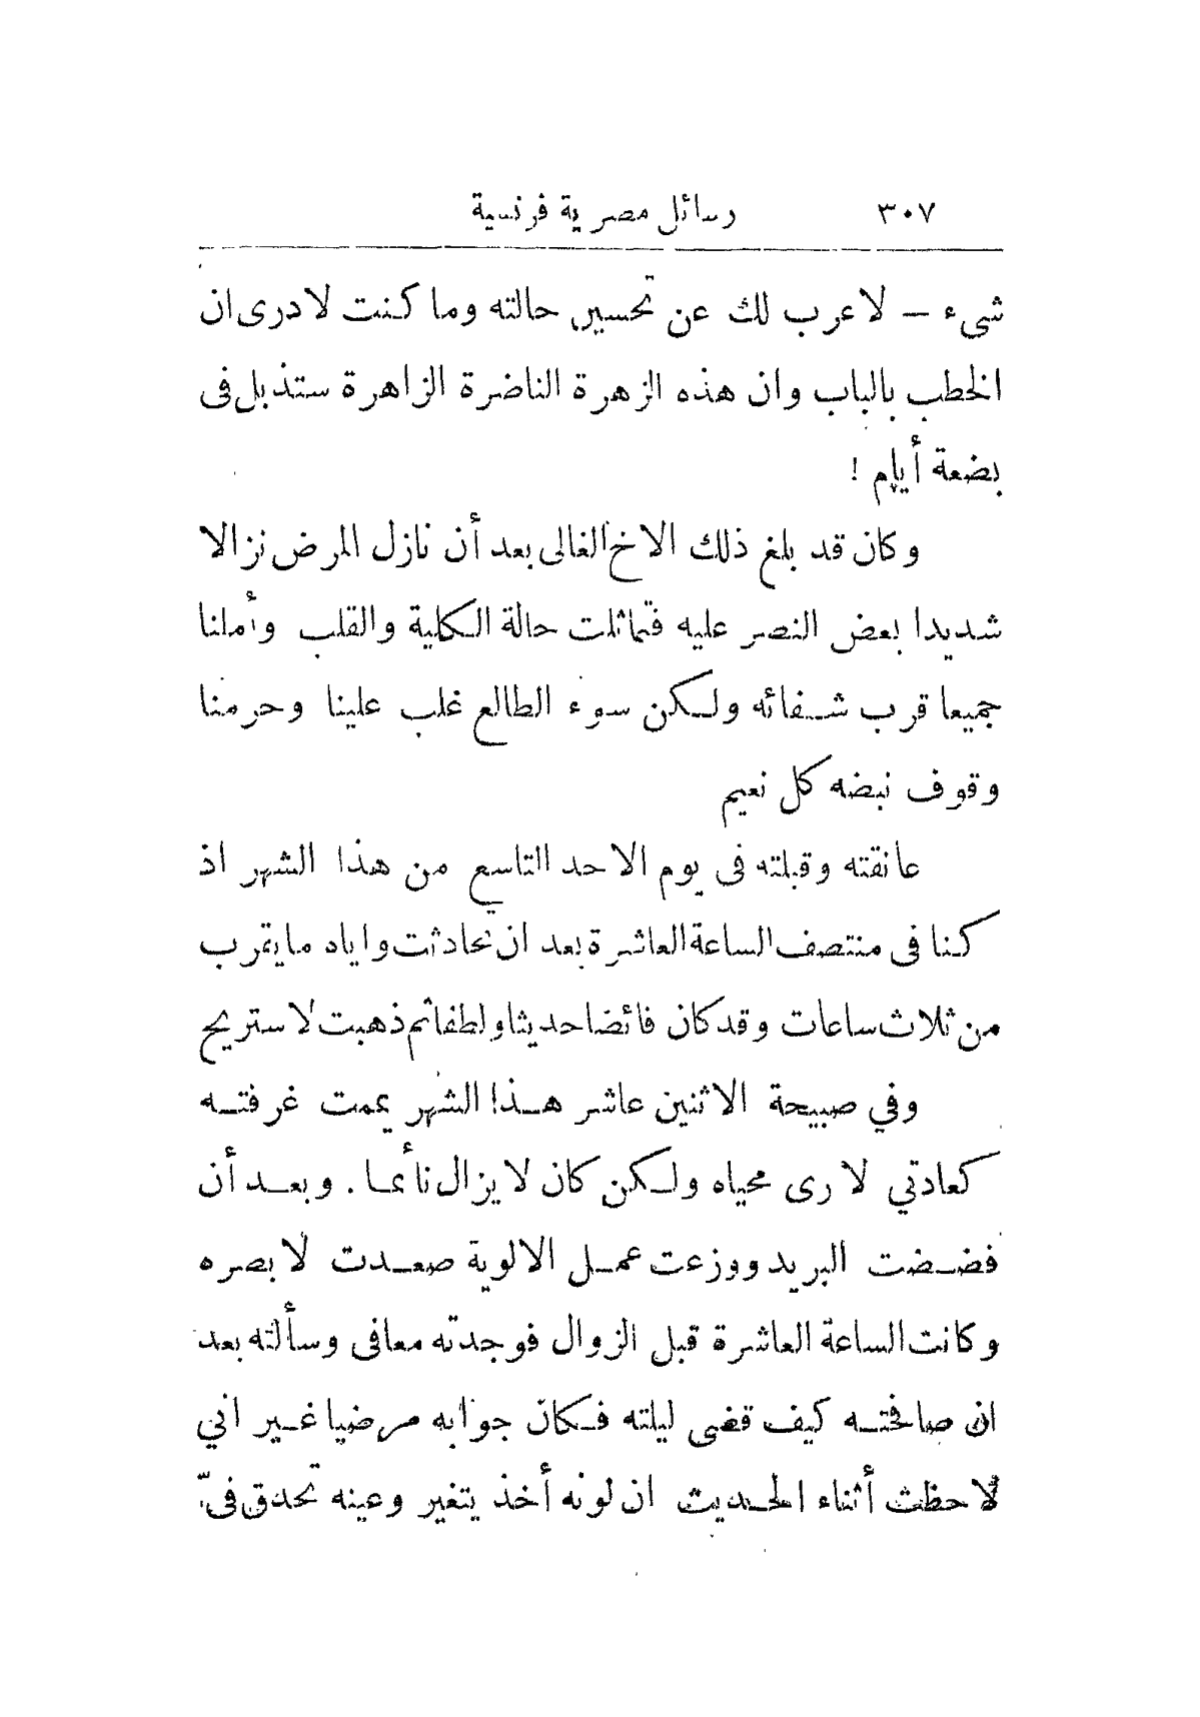 ٣٠٧ رسائل مصرية فرنسية
شيء – لاعرب لك عن تحسين حالته وما كنت لادرى ان
الخطب بالباب وان هذه الزهرة الناضرة الزاهرة ستذبل فى
بضعة أيام !
وكان قد بلغ ذلك الاخ الغالى بعد أن نازل المرض نزالا
شديدا بعض النصر عليه فتماثلت حالة الكلية والقلب وأملنا
جميعا قرب شفائه ولكن سوء الطالع غلب علينا وحرمنا
وقوف نبضه كل نعيم
عانقته وقبلته فى يوم الاحد التاسع من هذا الشهر اذ
كنا فى منتصف الساعة العاشرة بعد ان تحادثت واياه ما يقرب
من ثلاث ساعات وقد كان فائضا حديثا ولطفا ثم ذهبت لاستريح
وفي صبيحة الاثنين عاشر هذا الشهر يممت غرفته
كعادتي لارى محياه ولكن كان لا يزال نأئما . وبعد أن
فضضت البريد ووزعت عمل الالوية صعدت لابصره
وكانت الساعة العاشرة قبل الزوال فوجدته معافى وسألته بعد
ان صافحته كيف قضى ليلته فكان جوابه مرضيا غير اني
لاحظت أثناء الحديث ان لونه أخذ يتغير وعينه تحدق فىّ